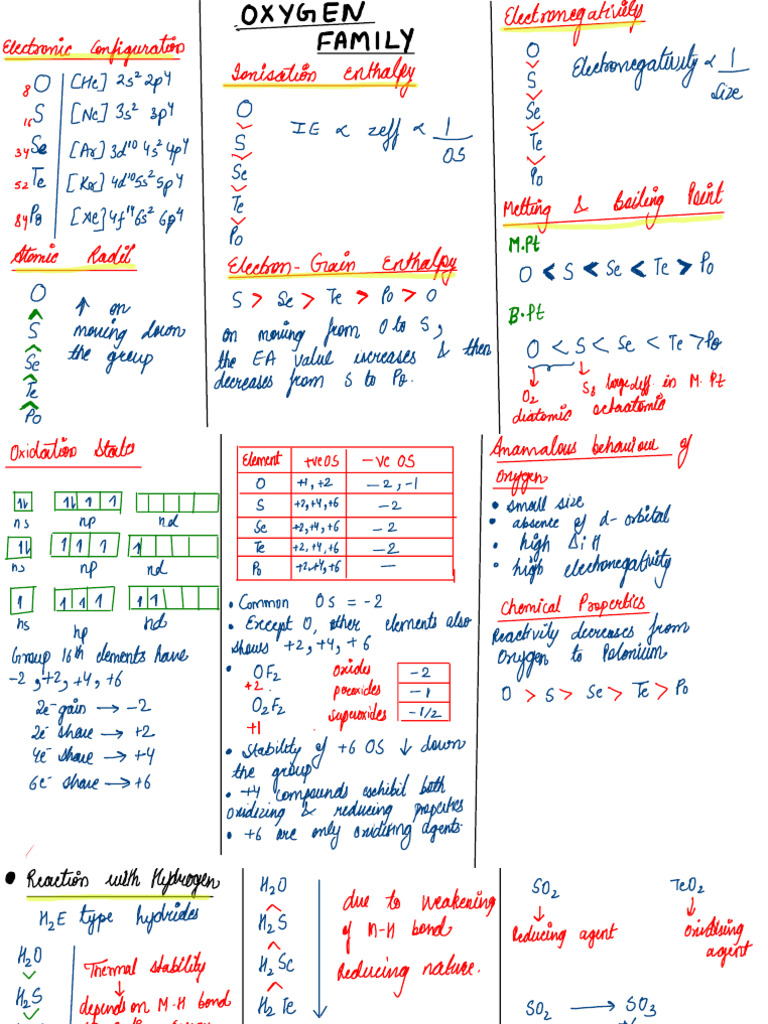 OXYGEN
FAMILY
Electronic Configuration
8O [He] 2s² 2p⁴
16S [Ne] 3s² 3p⁴
34Se [Ar] 3d¹⁰ 4s² 4p⁴
52Te [Kr] 4d¹⁰ 5s² 5p⁴
84Po [Xe] 4f¹⁴ 6s² 6p⁴
Atomic Radii
O
S
Se
Te
Po
↑ on
moving down
the group
Ionisation enthalpy
O
S
Se
Te
Po
IE ∝ zeff ∝ 1/OS
Electron-Grain Enthalpy
S > Se > Te > Po > O
on moving from O to S,
the EA value increases & then
decreases from S to Po.
Electronegativity
O
S
Se
Te
Po
Electronegativity ∝ 1/size
Melting & Boiling Point
M.Pt
O < S < Se < Te > Po
B.Pt
O < S < Se < Te > Po
O2 S8 large diff. in M.Pt
diatomic octaatomic
Oxidation State
1L 1L 1 1
ns np nd
1L 1 1 1 1
ns np nd
1 1 1 1 1 1
ns np nd
Group 16th elements have
-2, +2, +4, +6
2e⁻ gain → -2
2e⁻ share → +2
4e⁻ share → +4
6e⁻ share → +6
Element +ve OS -ve OS
O +1, +2 -2, -1
S +2, +4, +6 -2
Se +2, +4, +6 -2
Te +2, +4, +6 -2
Po +2, +4, +6 —
• Common OS = -2
• Except O, other elements also
shows +2, +4, +6
• OF2 oxides -2
+2 peroxides -1
O2F2 superoxides -1/2
+1
• Stability of +6 OS ↓ down
the group
• +4 compounds exhibit both
oxidizing & reducing properties
• +6 are only oxidising agents.
Anamalous behaviour of
Oxygen
• small size
• absence of d-orbital
• high ΔiH
• high electronegativity
Chemical Properties
Reactivity decreases from
Oxygen to Polonium
O > S > Se > Te > Po
• Reaction with Hydrogen
H2E type hydrides
H2O
H2S
Thermal stability
↓
depends on M-H bond
H2O
H2S
H2Se
H2Te
due to weakening
of M-H bond
Reducing nature.
SO2 TeO2
↓ ↓
Reducing agent Oxidising
agent
SO2 → SO3